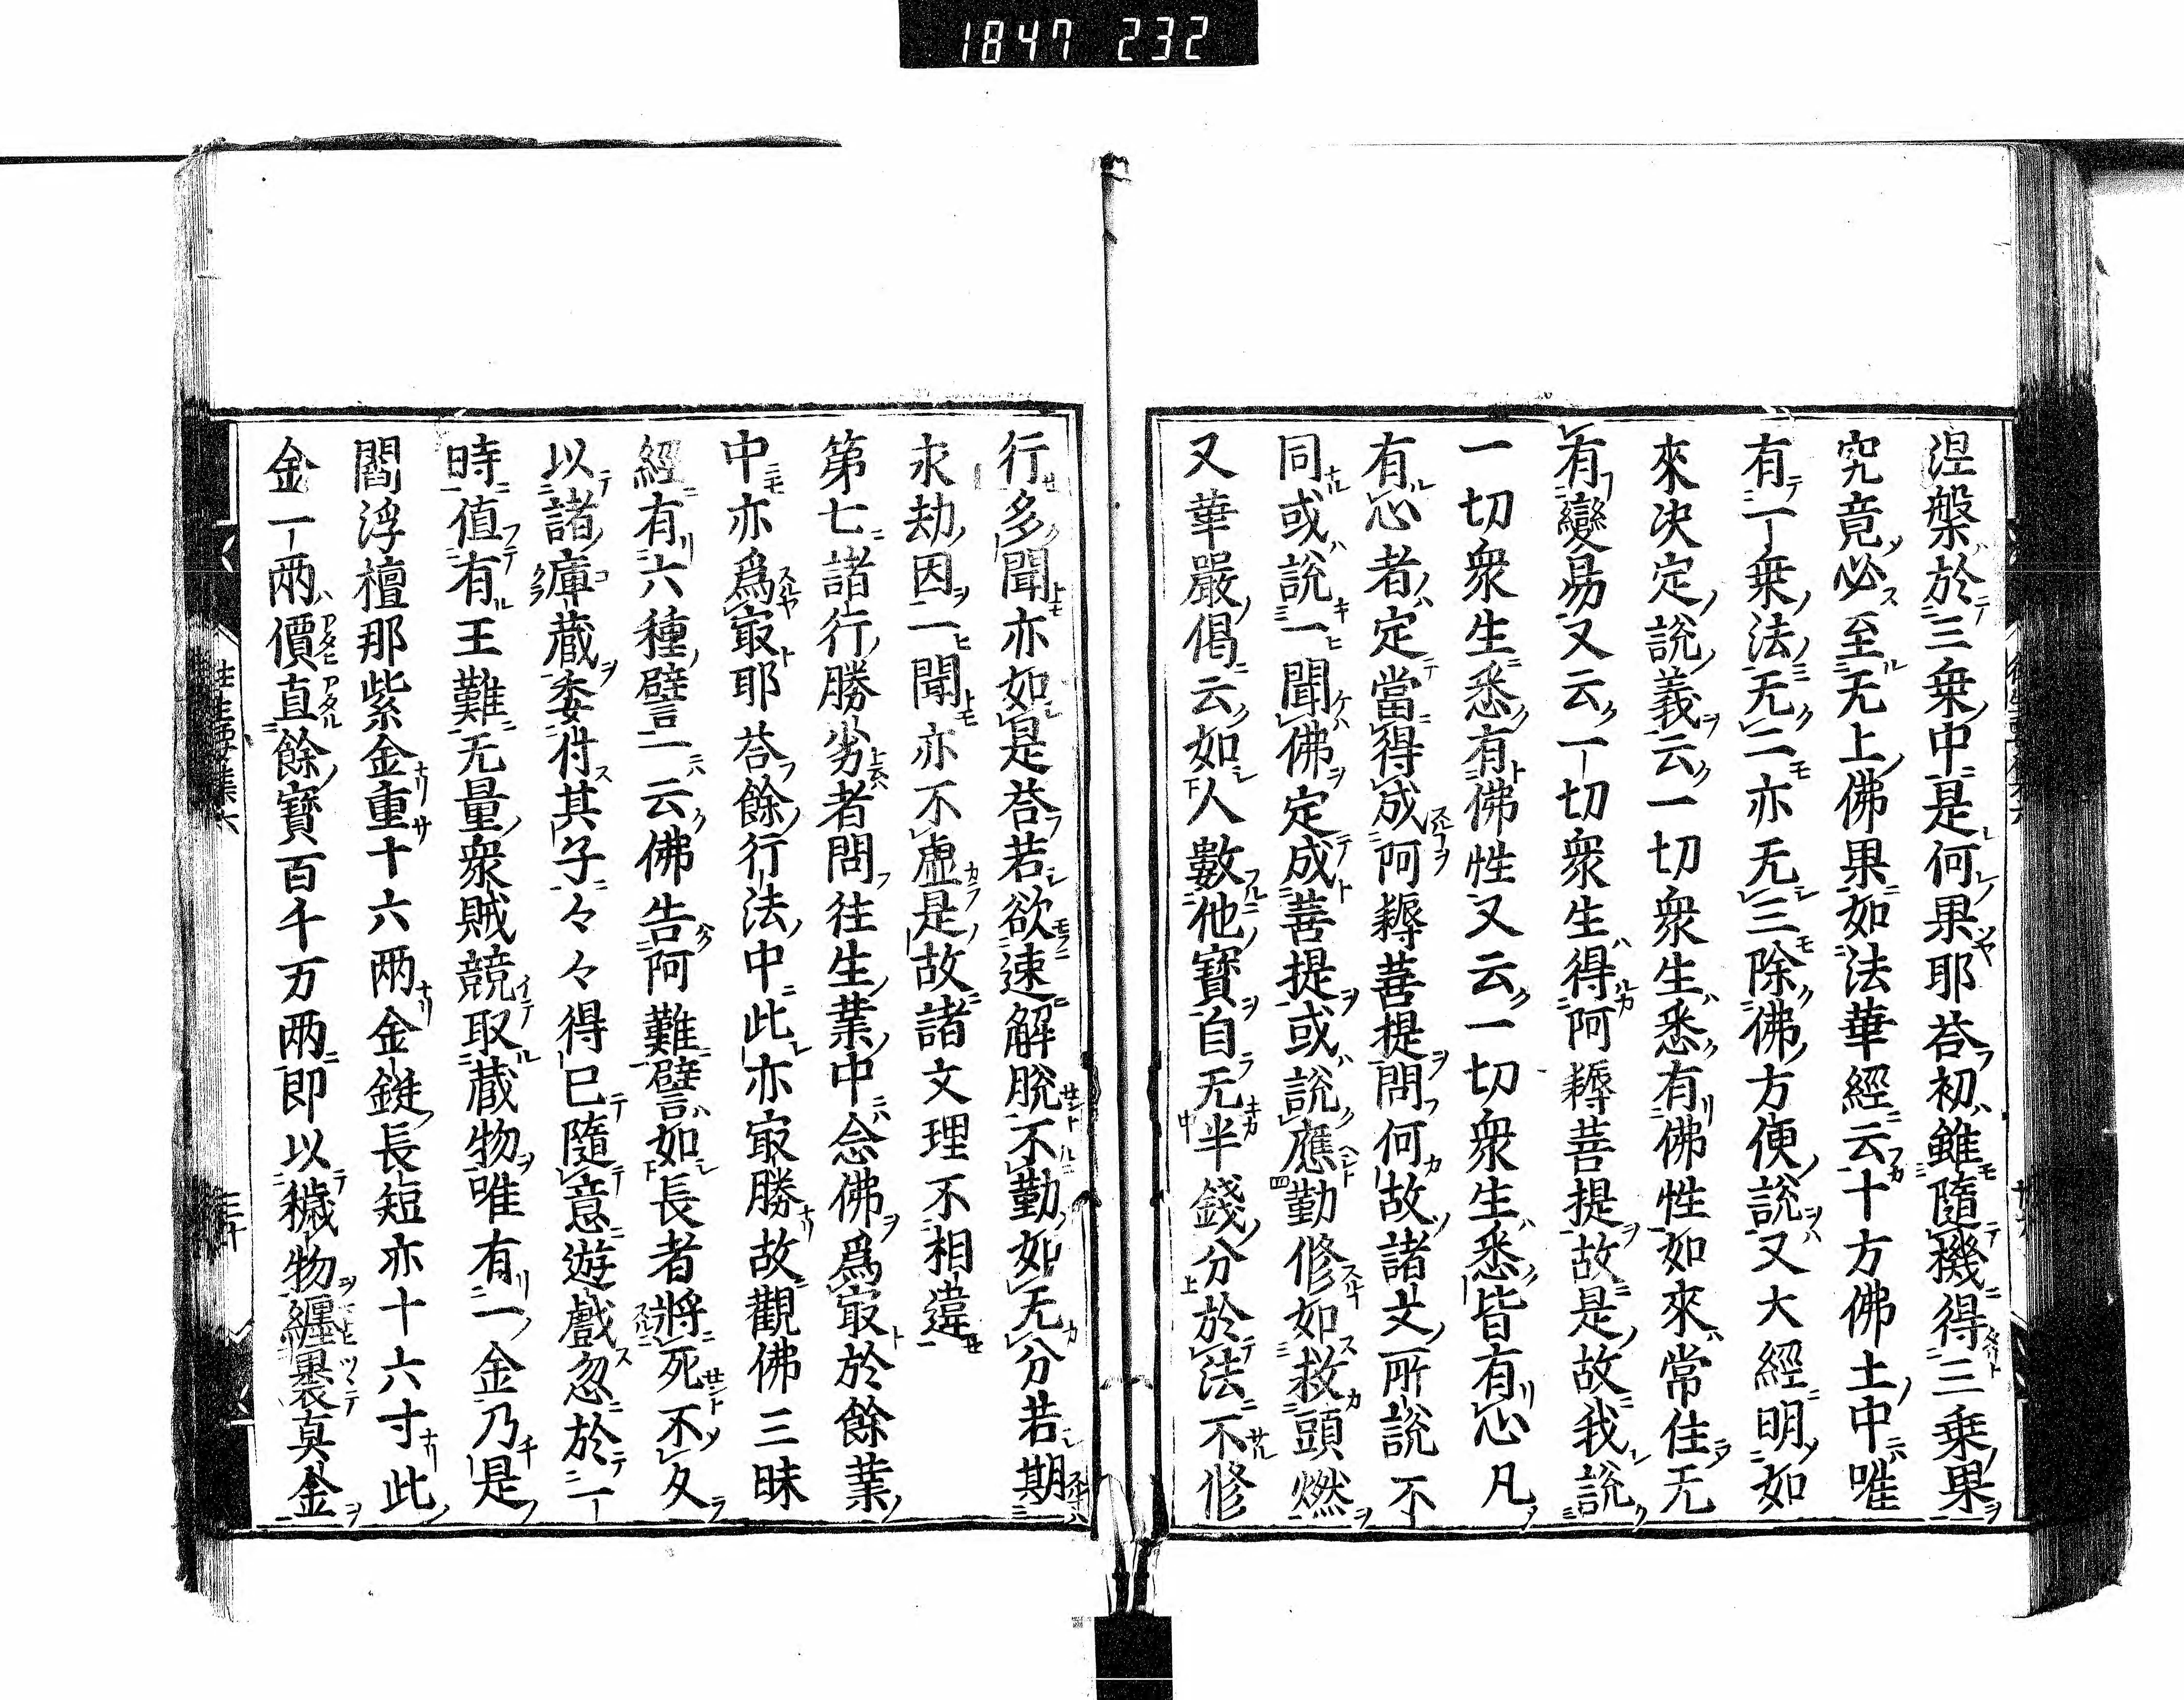 1847 232
涅槃於三乗中是何果耶荅初雖隨機得三乗果
究竟必至无上佛果如法華經云十方佛土中唯
有一乗法无二亦无三除佛方便說又大經明如
來决定說義云一切衆生悉有佛性如來常住无
有變易又云一切衆生得阿耨菩提故是故我說
一切衆生悉有佛性又云一切衆生悉皆有心凡
有心者定當得成阿耨菩提問何故諸文所說不
同或說一聞佛定成菩提或說應勤修如救頭燃
又華嚴偈云如人數他寶自无半錢分於法不修
行多聞亦如是荅若欲速解脫不勤如无分若期
永劫因一聞亦不虛是故諸文理不相違
第七諸行勝劣者問往生業中念佛爲㝡於餘業
中亦爲㝡耶荅餘行法中此亦㝡勝故觀佛三昧
經有六種譬一云佛告阿難譬如長者將死不久
以諸庫藏委付其子々々得已隨意遊戲忽於一
時值有王難无量衆賊競取藏物唯有一金乃是
閻浮檀那紫金重十六两金鋌長短亦十六寸此
金一两價直餘寶百千万两即以穢物纏裹真金